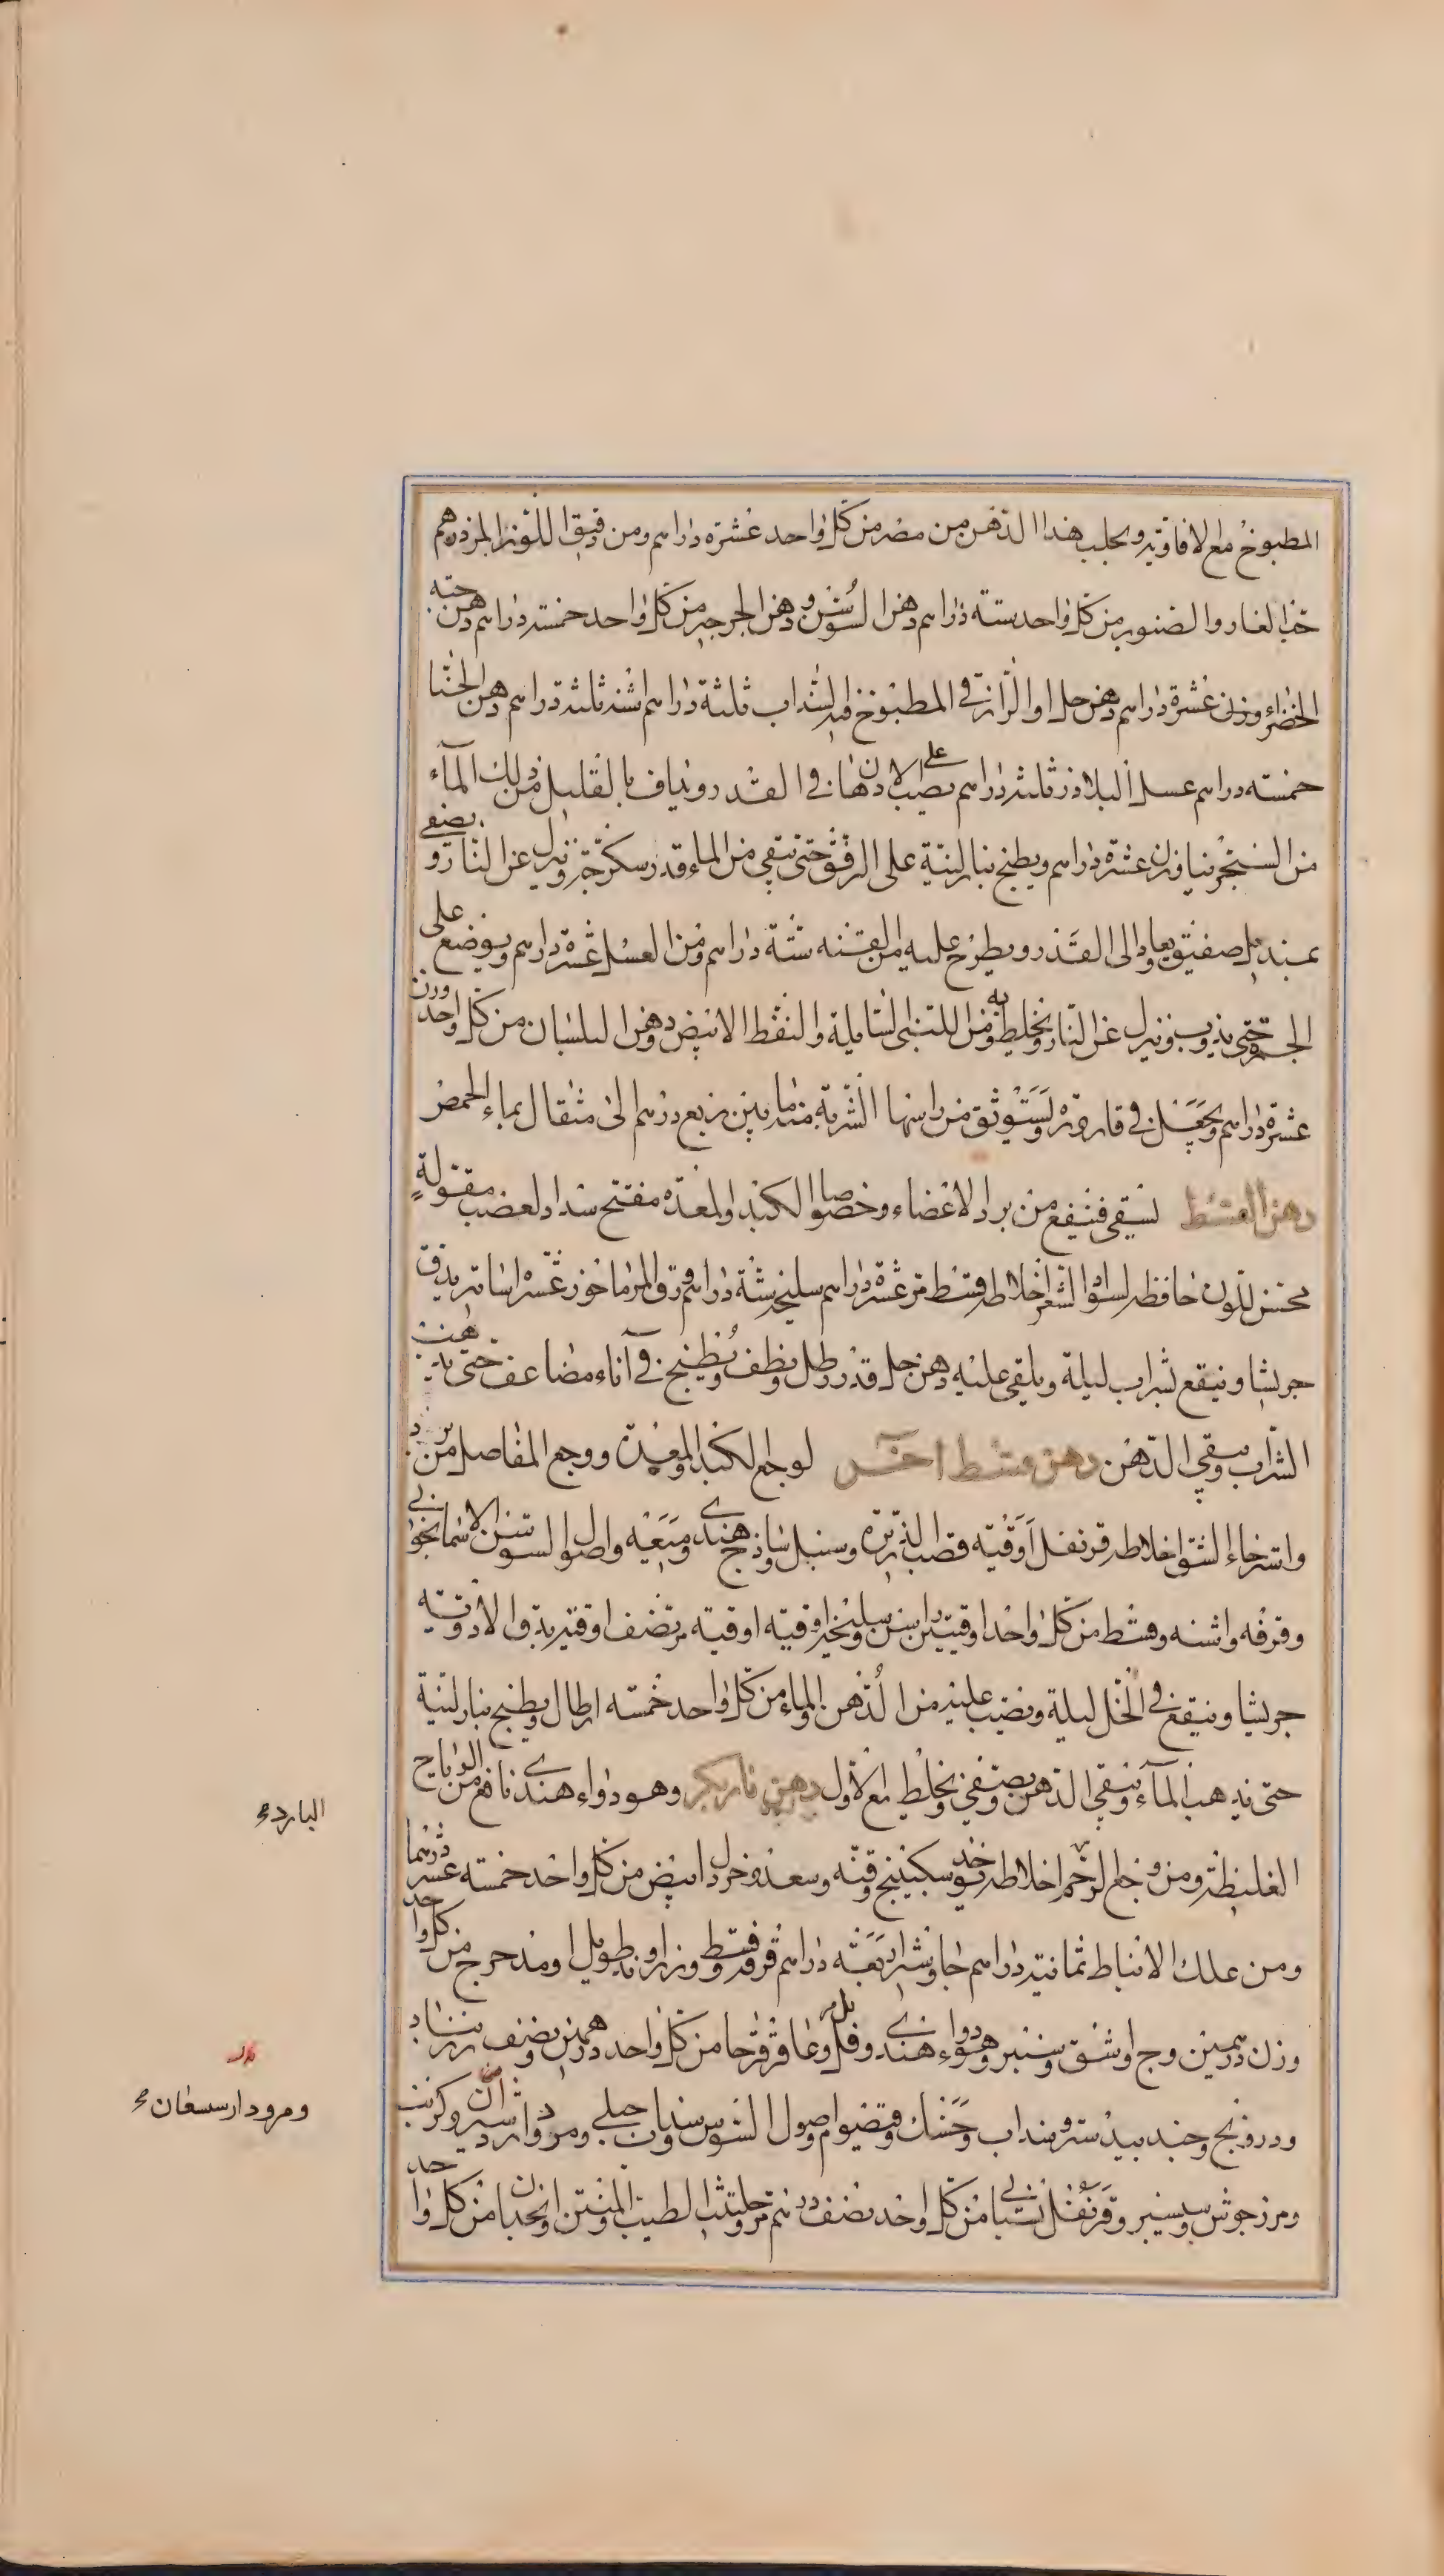 المطبوخ مع الافاويه ويجلب هذا الدهن من مصر من كل واحد عشرة دراهم ومن دقيق اللوز المر درهم
حب الغار والصنوبر من كل واحد ستة دراهم دهن السوسن ودهن الجرجير من كل واحد خمسة دراهم دهن حبة
الخضراء وزن عشرة دراهم دهن حل او الرازقي المطبوخ فيه السداب ثلثة دراهم اشنه ثلثة دراهم دهن الحنا
خمسة دراهم عسل البلاذر ثلثة دراهم يصب الادهان على في القدر ويداف بالقليل من ذلك الماء
من السنجرنيا وزن عشرة دراهم ويطبخ بنار لينة على الرفق حتى يبقى من الماء قدر سكرجة وينزل عن النار ويصفى
بمنديل صفيق ويعاد الى القدر ويطرح عليه من القنه ستة دراهم ومن العسل عشرة دراهم ويوضع على
الجمر حتى يذوب وينزل عن النار ويخلط به من اللبنى السايلة والنفط الابيض ودهن البلسان من كل واحد وزن
عشرة دراهم ويجعل في قارورة ويستوثق من راسها الشربة منه ما بين ربع درهم الى مثقال بماء الحمص
دهن القسط يسقى فينفع من برد الاعضاء وخصوصا الكبد والمعده مفتح سدد العصب مقوله
محسن للون حافظ لسواد الشعر اخلاطه قسط مر عشرة دراهم سليخه ستة دراهم ورق المرماخوز عشرة اساتير يدق
جريشا وينقع بشراب ليلة ويلقى عليه دهن حل قدر رطل ونظف ويطبخ في آناء مضاعف حتى يذهب
الشراب ويبقى الدهن دهن قسط اخر لوجع الكبد والمعدة ووجع المفاصل من برد
واسترخاء الشق اخلاطه قرنفل اوقيه قصب الذريرة وسنبل وساذج هندي وميعه واصول السوسن الاسمانجوني
وقرفه واشنه وقسط من كل واحد اوقيتين راسن وسليخه اوقيه اوقيه مر نصف اوقيه يدق الادوية
جريشا وينقع في الخل ليلة ويصب عليه من الدهن والماء من كل واحد خمسه ارطال ويطبخ بنار لينة
حتى يذهب الماء ويبقى الدهن ويصفى ويخلط مع الاول دهن ناريكر وهو دواء هندي نافع من الرياح
البارده
الغليظة ومن وجع الرحم اخلاطه خذ سكبينج وقنه وسعد وخردل ابيض من كل واحد خمسه عشر درهما
ومن علك الانباط ثمانية دراهم جاوشير اربعة دراهم قرفه وقسط وزراوند طويل ومدحرج من كل واحد
وزن درهمين وج واشق وسنبر وهو دواء هندي وفلفل وعاقرقرحا من كل واحد درهمين ونصف زرنباد
ودرونج وجندبيدستر وسداب وحسك وقيصوم واصول السوس وسداب جبلي ومرو وكرنب
ومرودارسسعان
ومرزجوش وسيسنبر وقرنفل بستاني من كل واحد نصف درهم مر وحلتيت الطيب والمنتن وانجدان من كل واحد